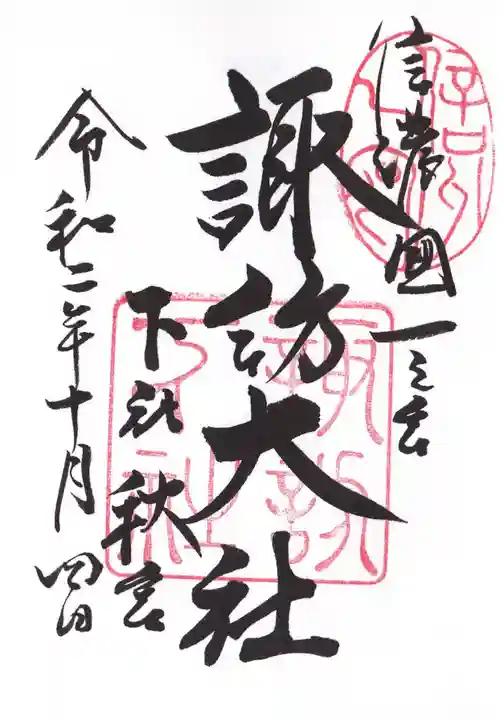 信濃國一之宮
諏訪大社
下社秋宮
令和二年十月四日
諏訪
下社